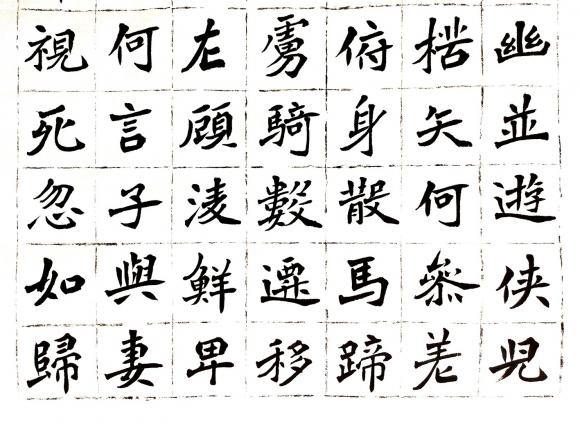 幽並遊俠兒
楛矢何參差
俯身散馬蹄
虜騎數遷移
左顧淩鮮卑
何言子與妻
視死忽如歸